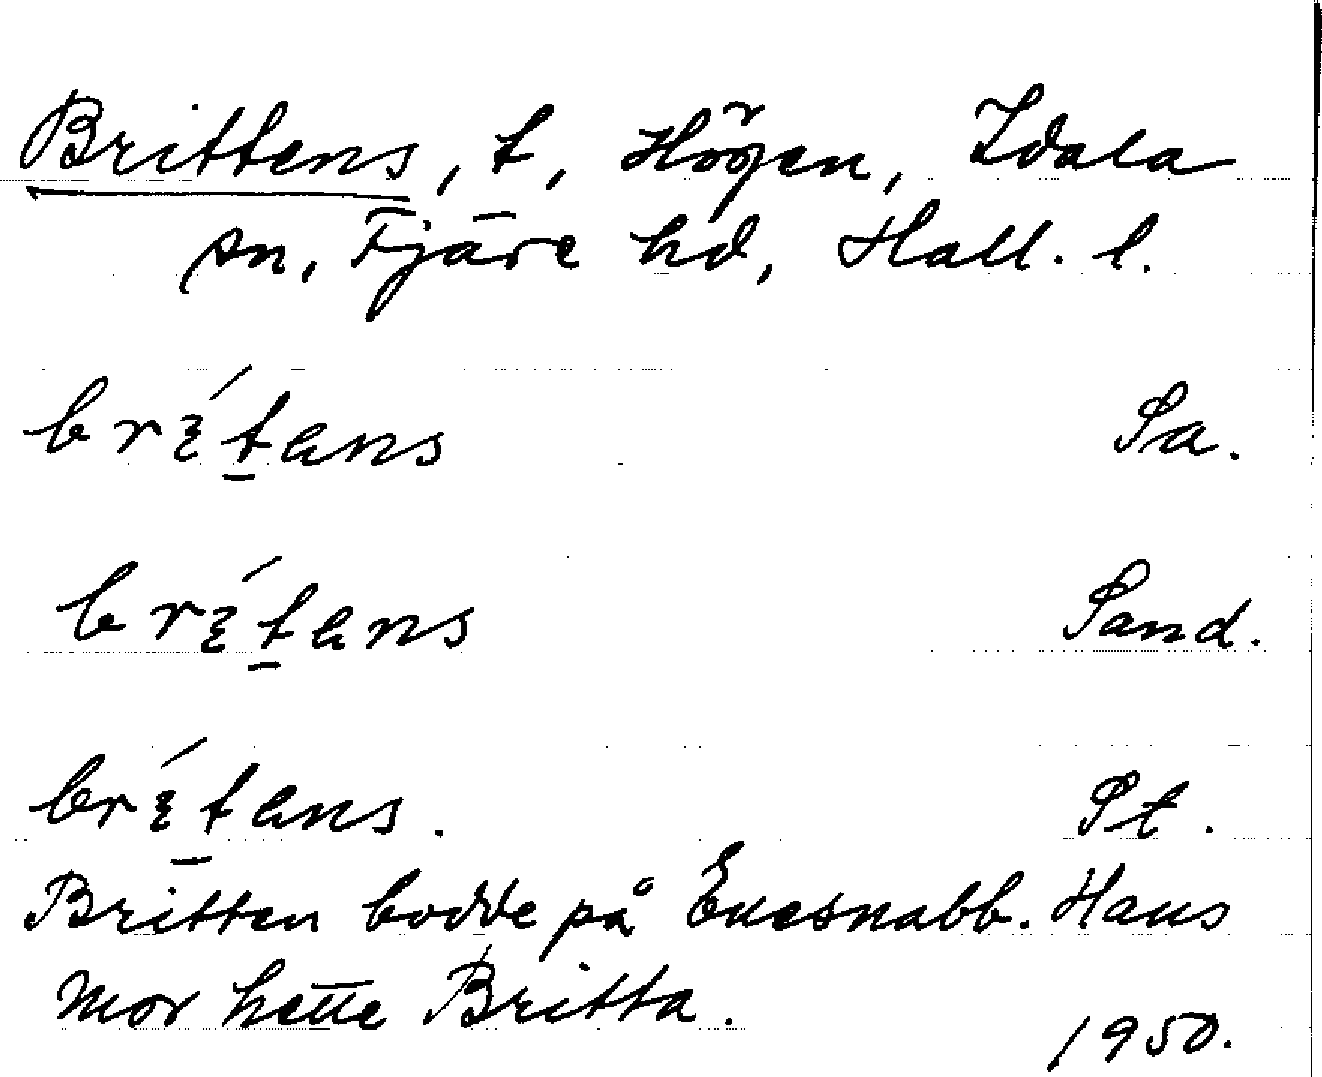 Brittens, t, Högen, Idala
sn, Fjäre hd, Hall. l.
brɛ́tans Sa.
brɛ́tans Sand.
brɛ́tans. St.
Britten bodde på Enesnabb. Hans
mor hette Britta.
1950.